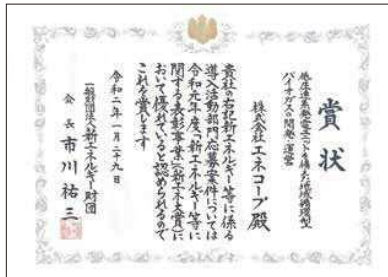 賞状
株式会社エネコープ殿
貴社の右記新エネルギー等に係る
導入活動部門応募案件については
令和元年度「新エネルギー等に
関する表彰事業(新エネ大賞)に
おいて優れていると認められるので
これを賞します
令和二年一月二十九日
一般財団法人新エネルギー財団
会長市川祐三